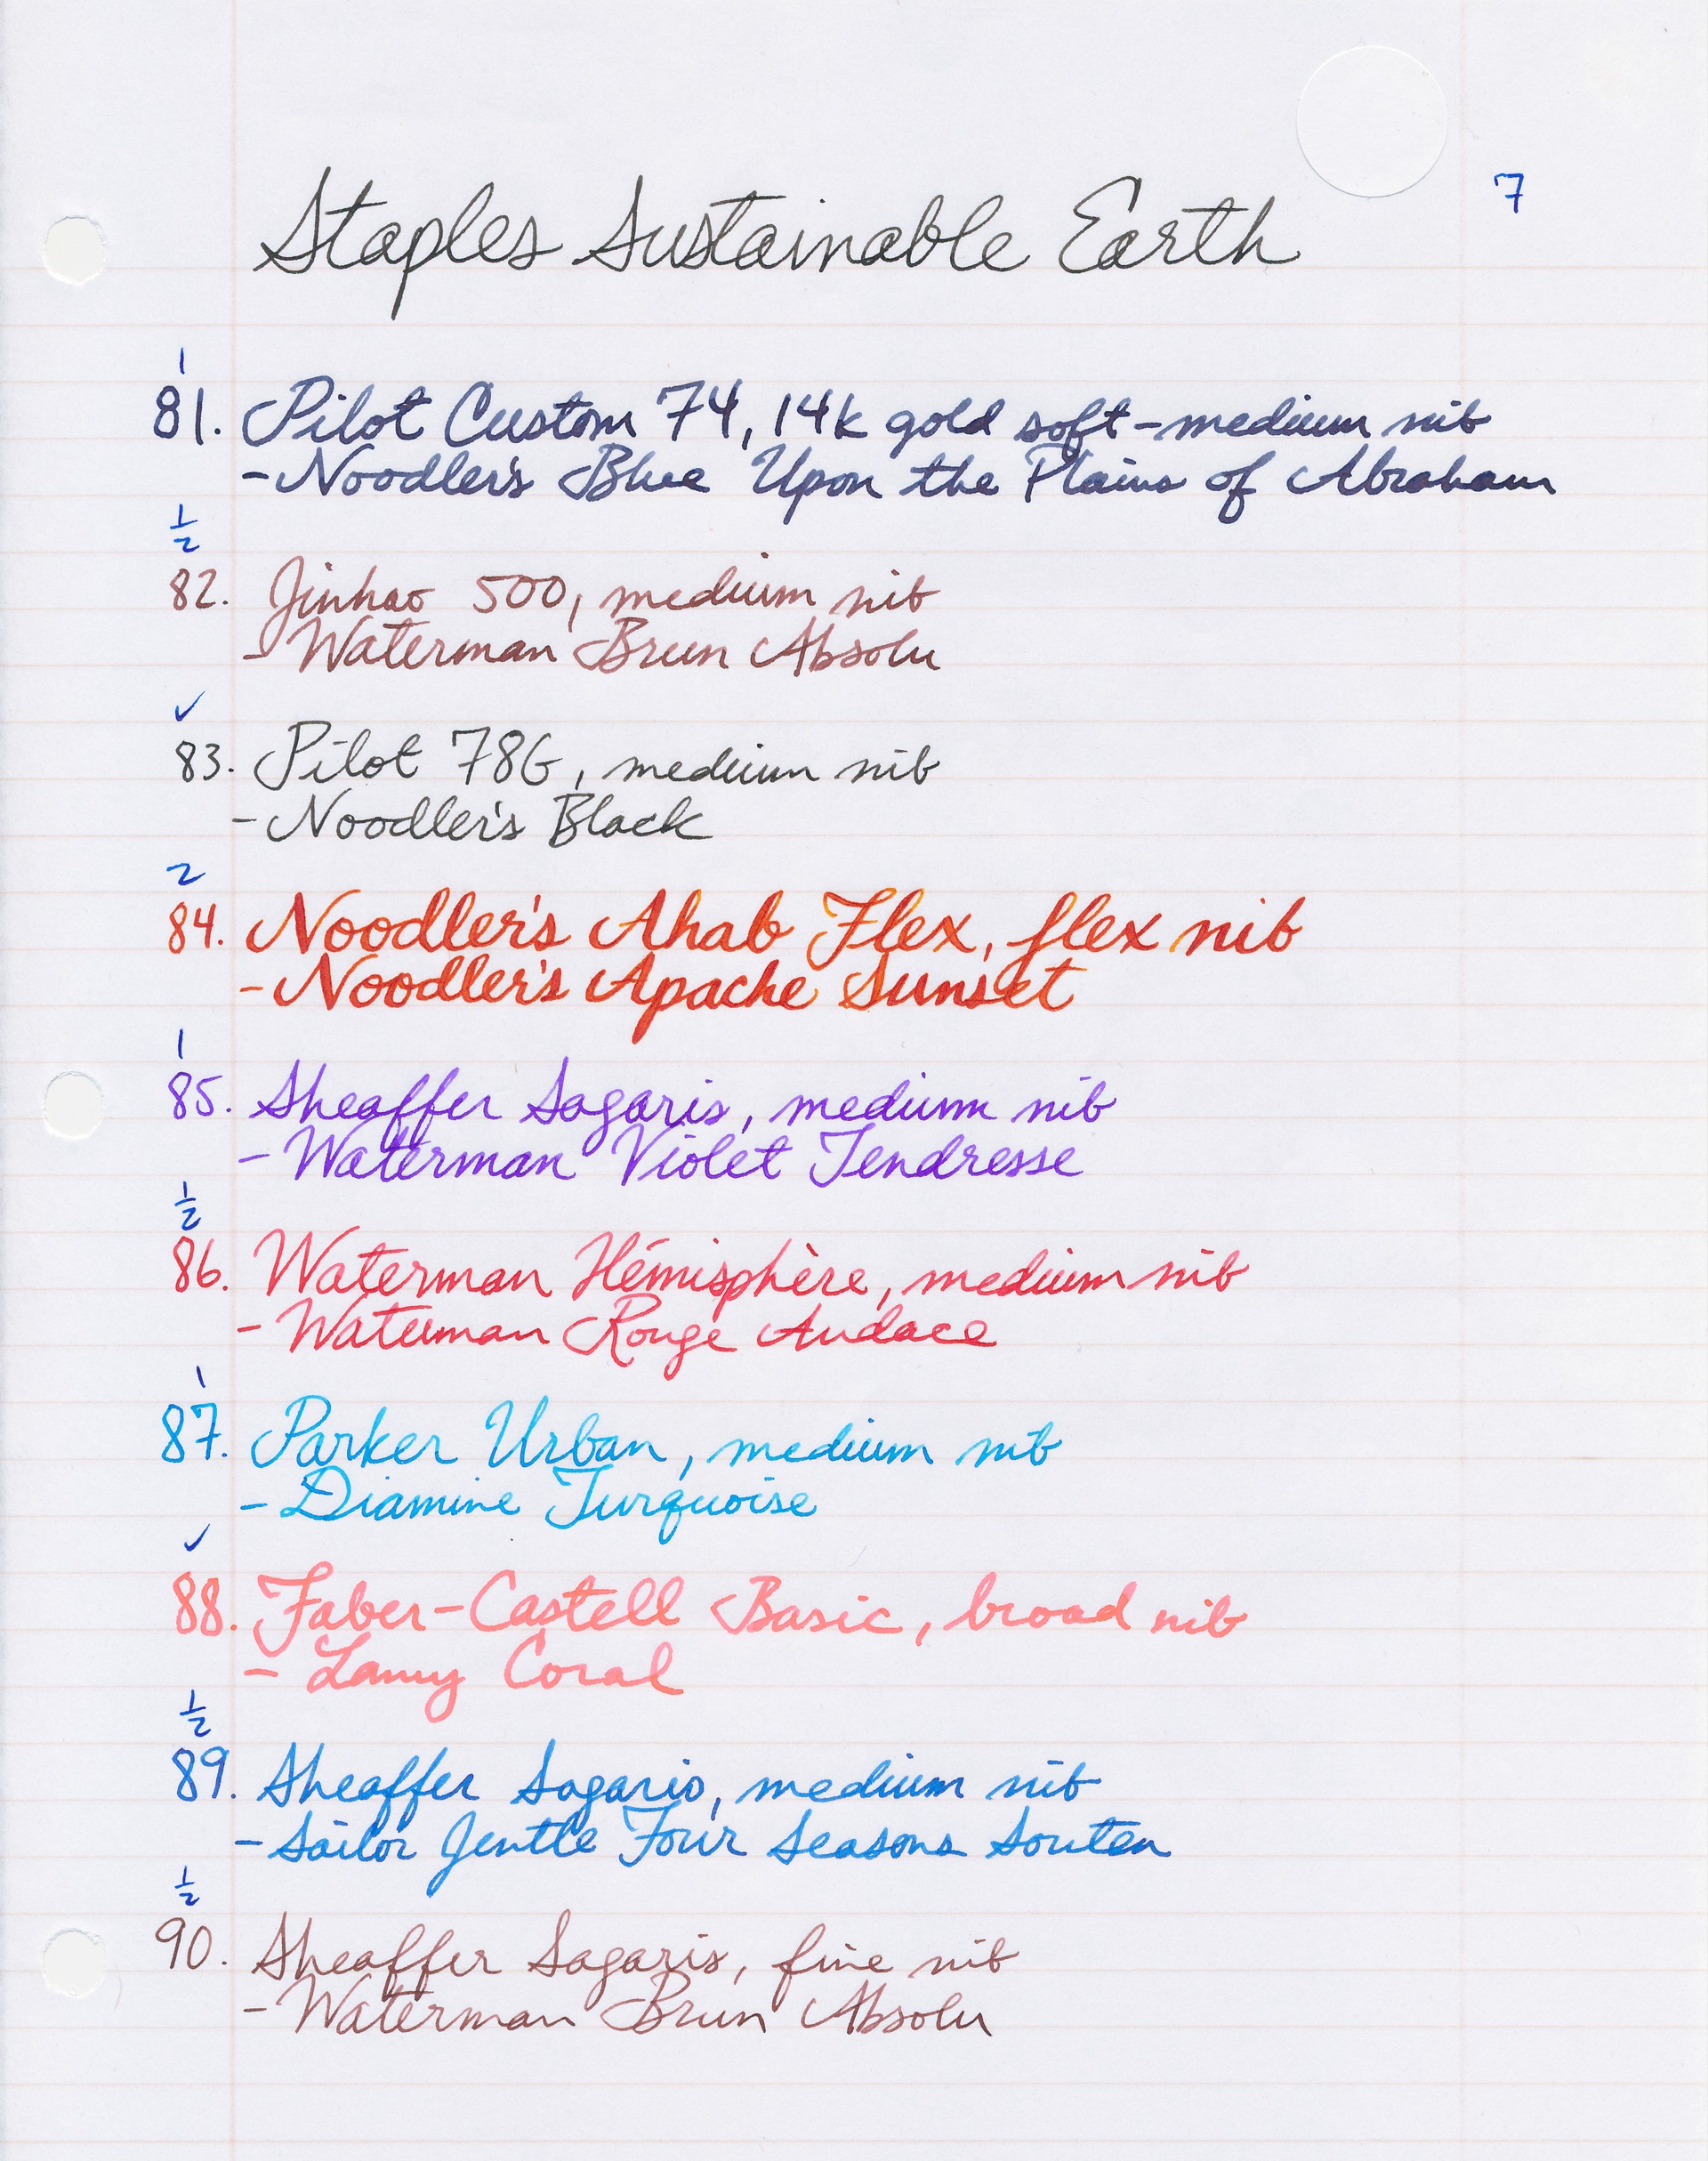 7
Staples Sustainable Earth
1
81. Pilot Custom 74, 14k gold soft-medium nib
- Noodler's Blue Upon the Plains of Abraham
1/2
82. Jinhao 500, medium nib
- Waterman Brun Absolu
✓
83. Pilot 78G, medium nib
- Noodler's Black
2
84. Noodler's Ahab Flex, flex nib
- Noodler's Apache Sunset
1
85. Sheaffer Sagaris, medium nib
- Waterman Violet Tendresse
1/2
86. Waterman Hémisphère, medium nib
- Waterman Rouge Audace
1
87. Parker Urban, medium nib
- Diamine Turquoise
✓
88. Faber-Castell Basic, broad nib
- Lamy Coral
1/2
89. Sheaffer Sagaris, medium nib
- Sailor Jentle Four Seasons Souten
1/2
90. Sheaffer Sagaris, fine nib
- Waterman Brun Absolu